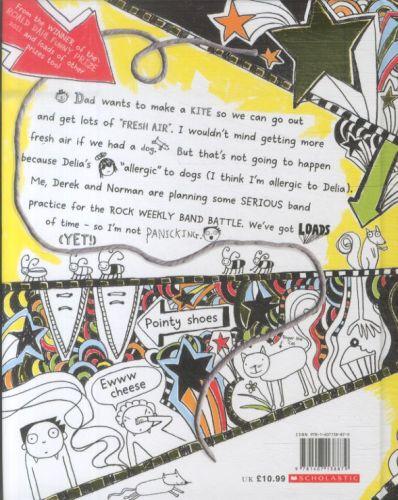 From the WINNER of the
ROALD DAHL FUNNY PRIZE
2011 and loads of other
prizes too!
Dad wants to make a KITE so we can go out
and get lots of "FRESH AIR". I wouldn't mind getting more
fresh air if we had a dog. But that's not going to happen
because Delia's "allergic" to dogs (I think I'm allergic to Delia).
Me, Derek and Norman are planning some SERIOUS band
practice for the ROCK WEEKLY BAND BATTLE. We've got LOADS
of time - so I'm not PANICKING.
(YET!)
Pointy shoes
Ewww
cheese
UK £10.99
SCHOLASTIC